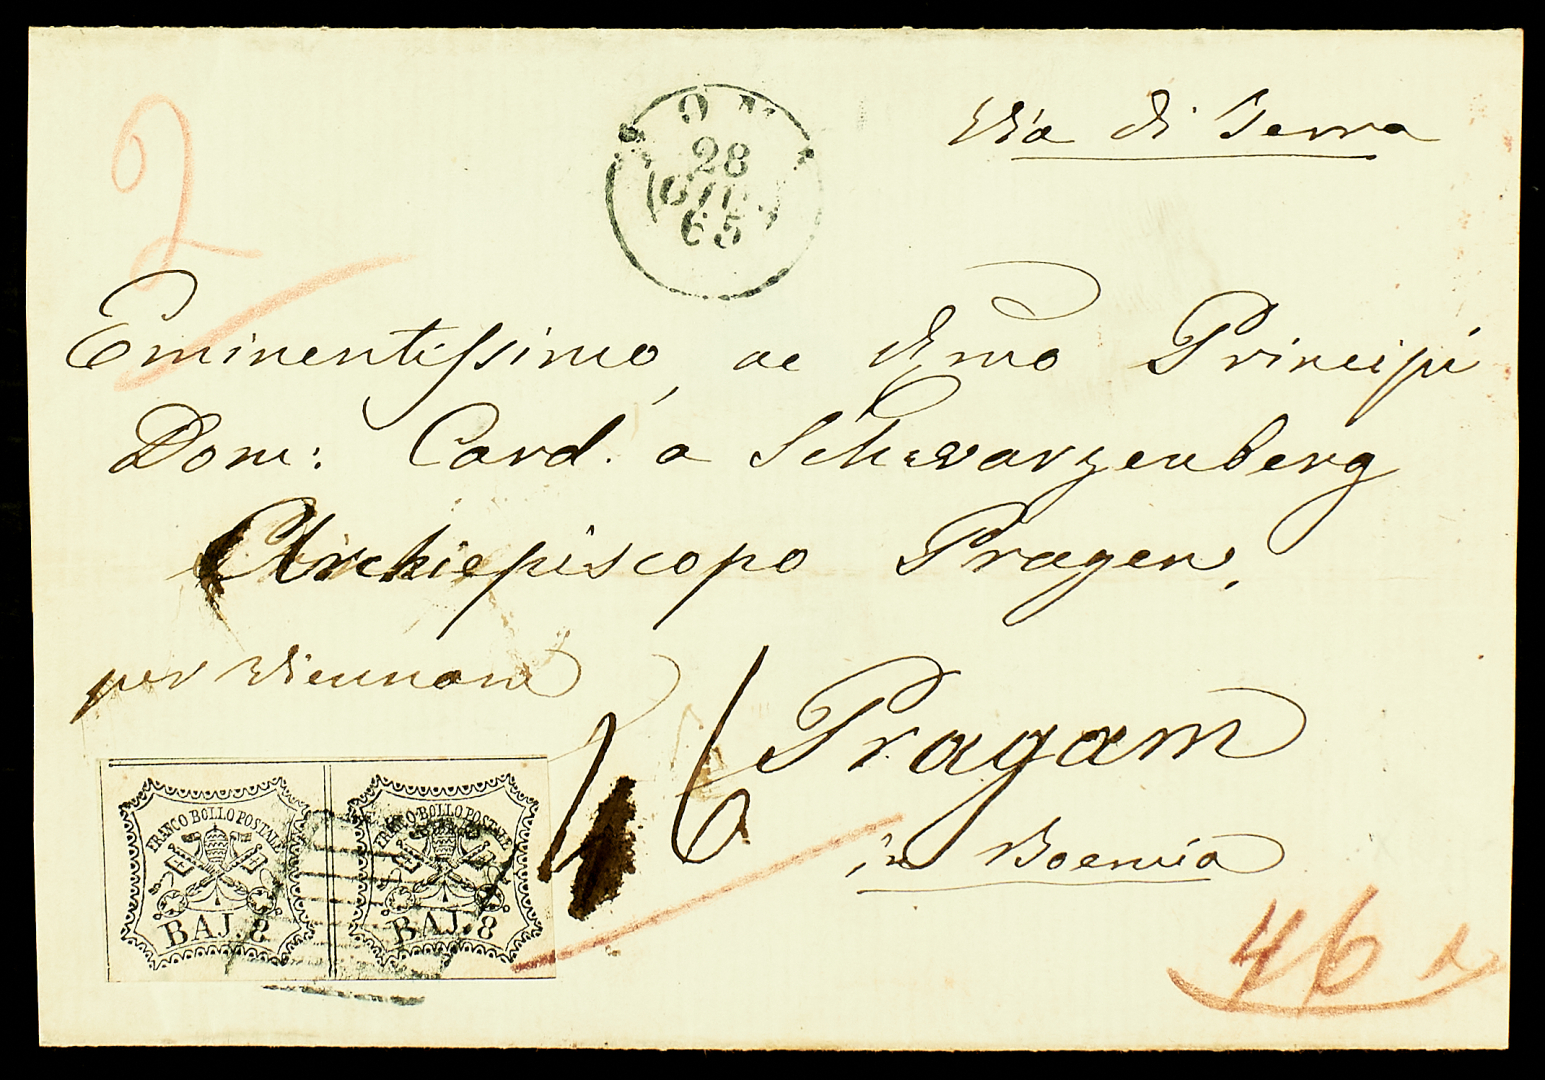 2
Via di Terra
ROM
28
GIU
65
Eminentissimo, ac Rmo Principi
Dom: Card. a Schwarzenberg
Archiepiscopo Pragen.
per Viennam
16
Pragam
in Boemia
FRANCO BOLLO POSTALE
BAJ. 8
FRANCO BOLLO POSTALE
BAJ. 8
46